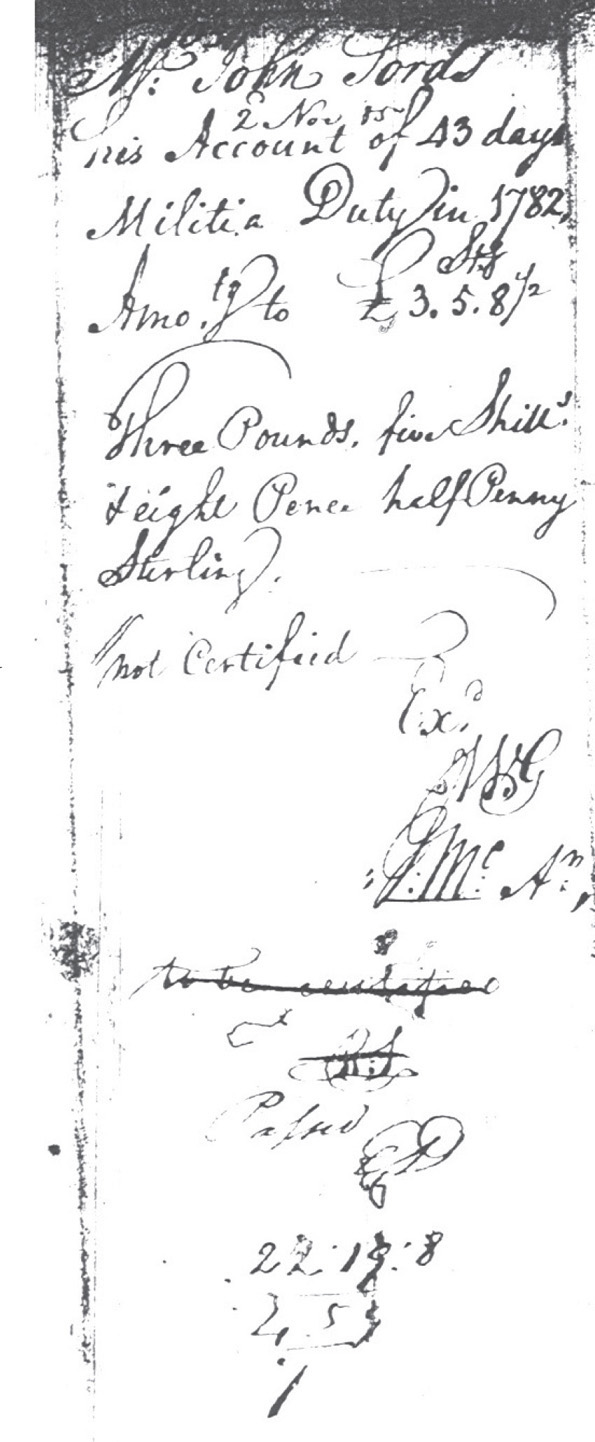 Mr. John Fords
2d Nov 85
his Account of 43 days
Militia Duty in 1782,
Stg
Amo.tg to £ 3. 5. 8 1/2
Three Pounds. five Shills.
& eight Pence half Penny
Sterling.
not Certified
Exd
JMc An,
to be certified
Passed